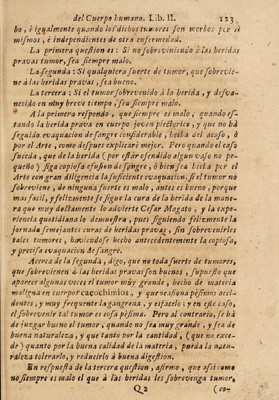 del Cuerpo humano. Lib. II. 123
ba, è igualmente quando los dichos tumores son morbos por si
mismos, è independientes de otra enfermedad.
La primera question es: Si no sobreviniendo à las heridas
pravas tumor, sea siempre malo.
La segunda: Si qualquiera suerte de tumor, que sobrevie-
ne à las heridas pravas, sea bueno.
La tercera: Si el tumor sobrevenido à la herida, y desva-
necido en muy breve tiempo, sea siempre malo.
A la primera respondo, que siempre es malo, quando es-
tando la herida prava en cuerpo joven plectorico, y que no hà
seguido evacuacion de sangre considerable, hecha del acaso, ò
por el Arte, como despues explicarè mejor. Pero quando el caso
suceda, que de la herida (por estàr ofendido algun vaso no pe-
queño) siga copiosa efusion de sangre, ò bien sea hecha por el
Arte con gran diligencia la suficiente evacuacion, si el tumor no
sobreviene, de ninguna suerte es malo, antes es bueno, porque
mas facil, y felizmente se sigue la cura de la herida de la mane-
ra que muy doctamente lo advierte Cesar Magato, y la expe-
riencia quotidiana lo demuestra, pues siguiendo felizmente la
jornada semejantes curas de heridas pravas, sin sobrevenirles
tales tumores, haviendose hecho antecedentemente la copiosa,
y precisa evacuacion de sangre.
Acerca de la segunda, digo, que no toda suerte de tumores,
que sobrevienen à las heridas pravas son buenos, supuesto que
aparece alguna veces el tumor muy grande, hecho de materia
maligna en cuerpo cacochimico, y que ocasiona pésimos acci-
dentes, y muy frequente la gangrena, y esfacelo; y en este caso,
el sobrevenir tal tumor es cosa pésima. Pero al contrario, se hà
de juzgar bueno el tumor, quando no sea muy grande, y sea de
buena naturaleza, y que tanto por la cantidad, (que no exce-
de) quanto por la buena calidad de la materia, pueda la natu-
raleza tolerarlo, y reducirlo à buena digestion.
En respuesta de la tercera question, afirmo, que assi como
no siempre es malo el que à las heridas les sobrevenga tumor,
Q2 (co-